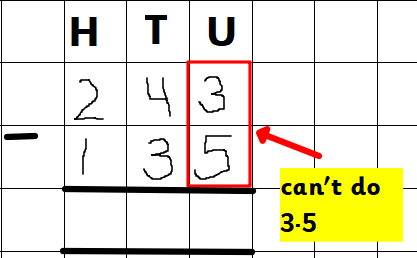 H T U
2 4 3
- 1 3 5
can't do
3-5